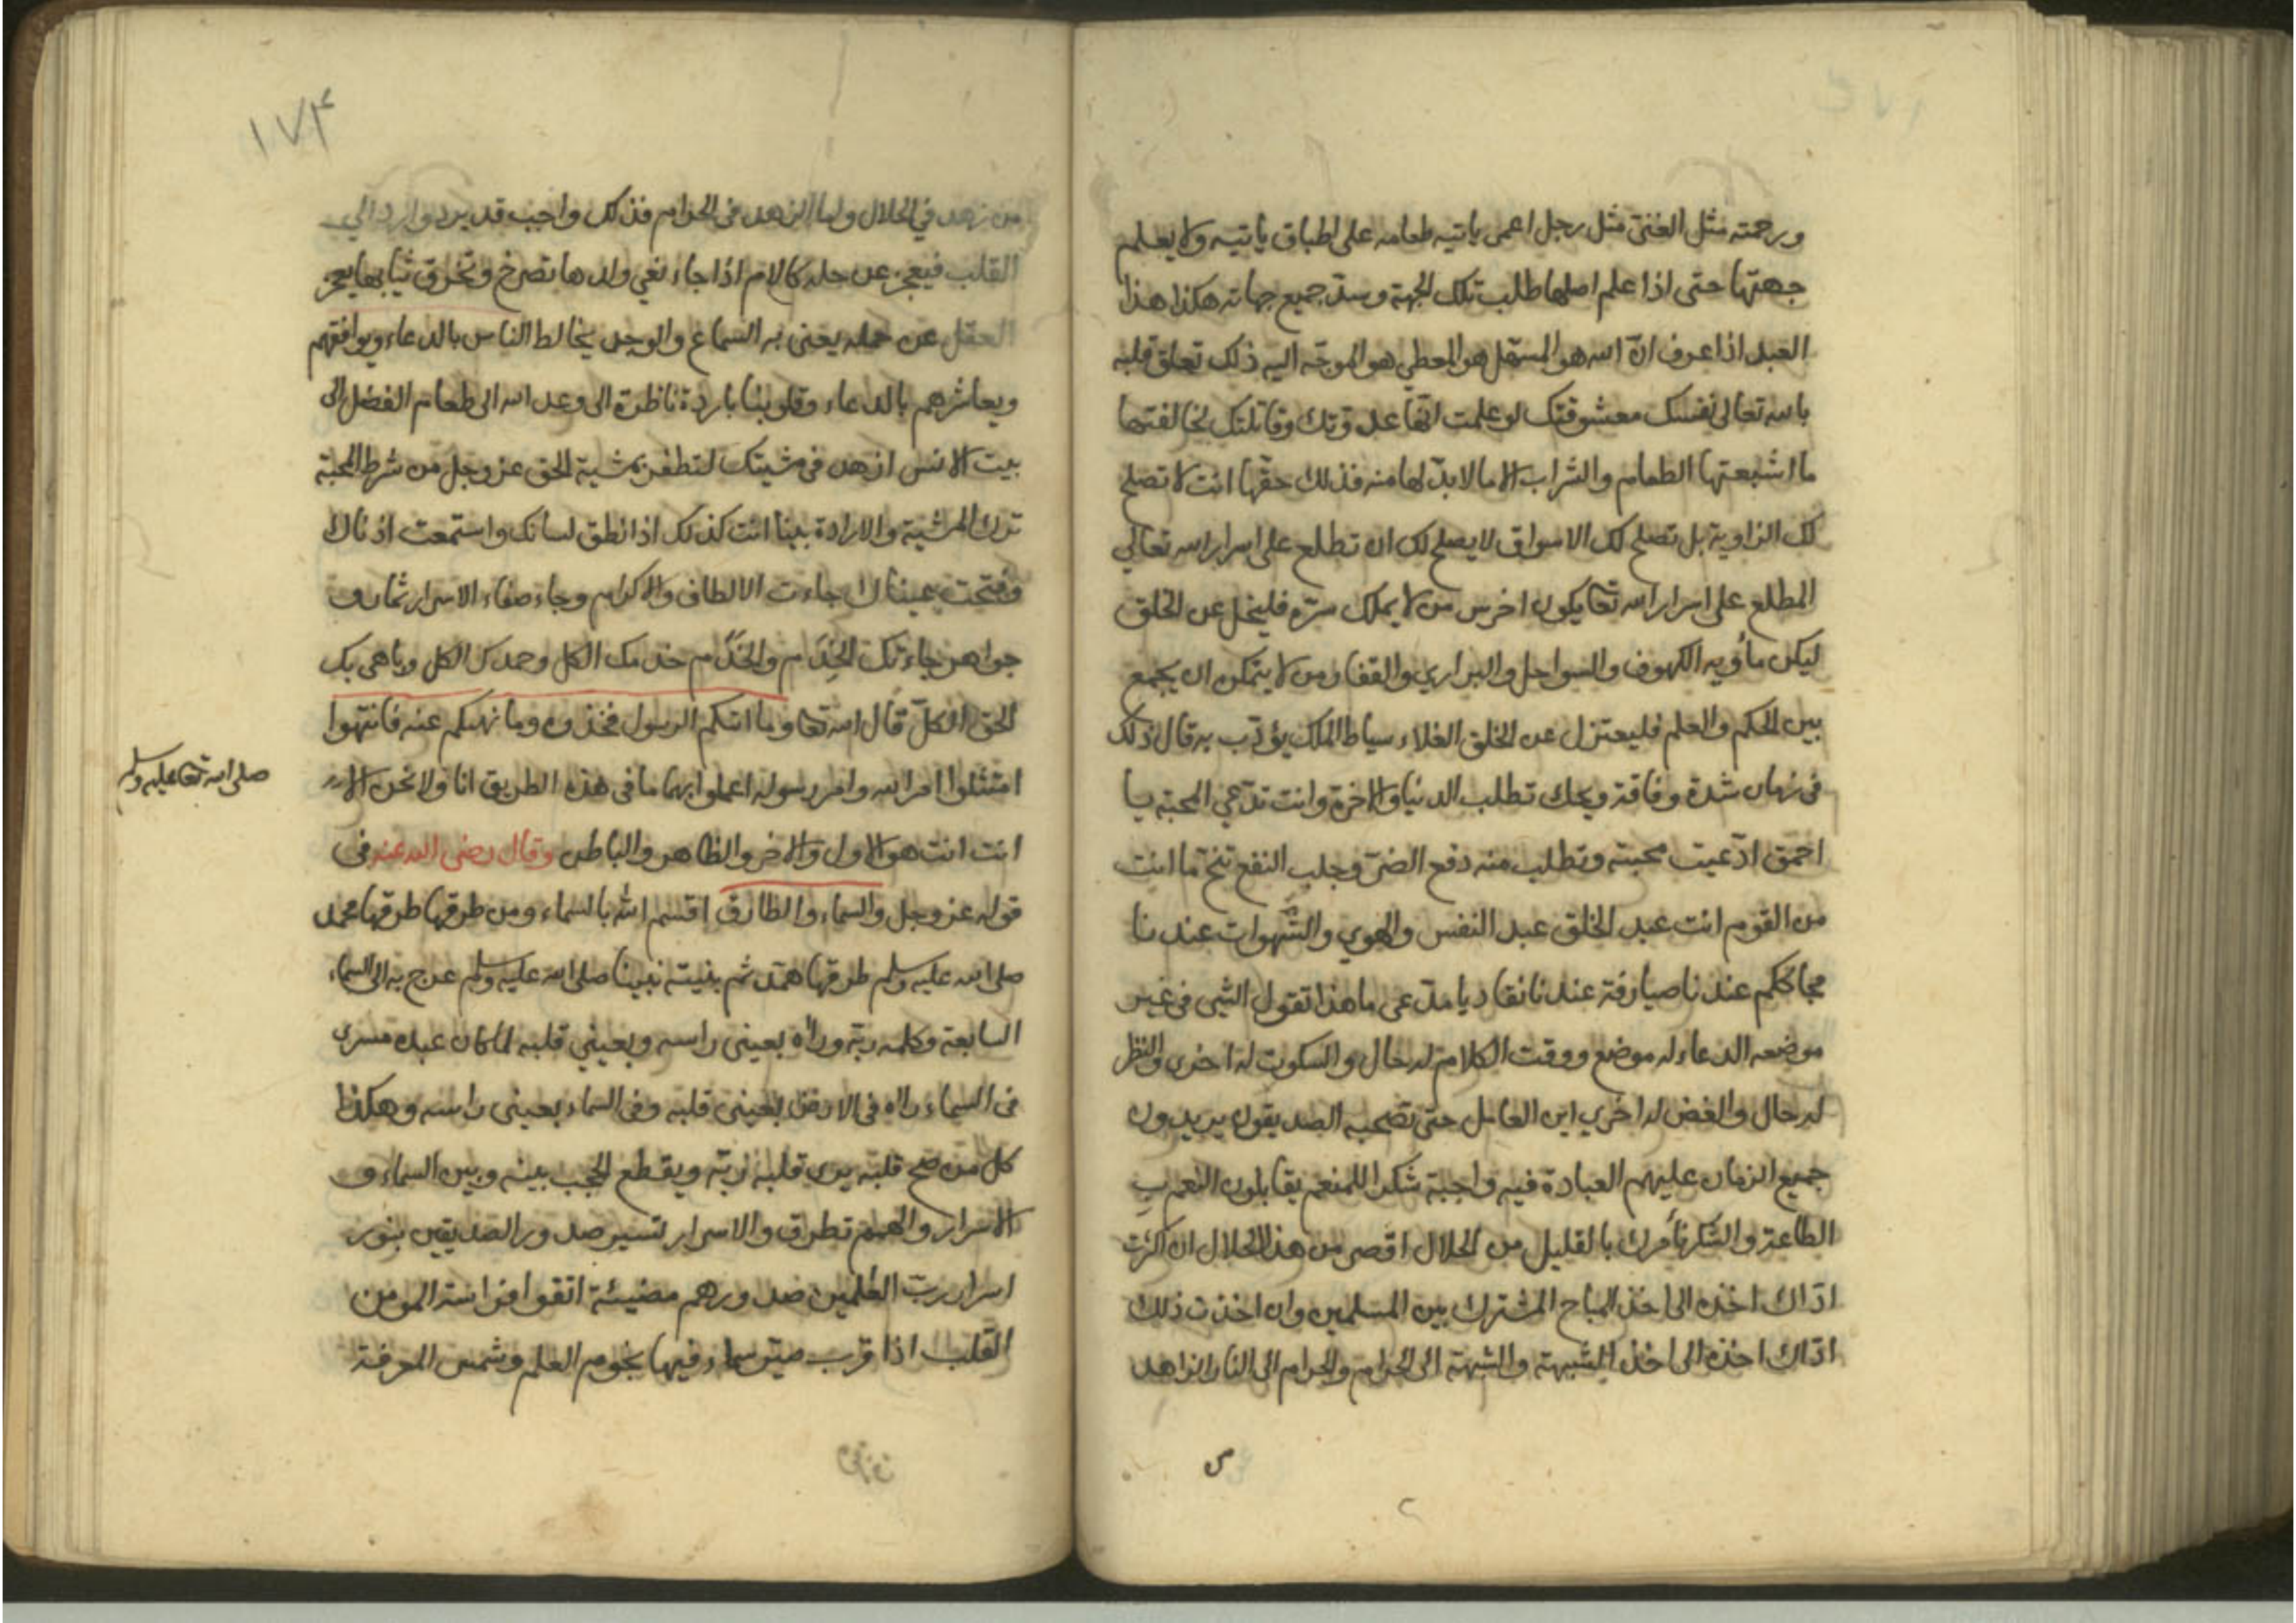 ورحمته مثل الغنى مثل رجل اعمى ياتيه طعامه على اطباق ياتيه ولا يعلم
جهتها حتى اذا علم اصلها طلب تلك الجهة وسدّ جميع جهاته هكذا هذا
العبد اذا عرف انّ الله هو المسهّل هو المعطي هو الموجّه اليه ذلك تعلق قلبه
بالله تعالى نفسك معشوقتك لو علمت انّها عدوّتك وقاتلتك لخالفتها
ما اشبعتها الطعام والشراب الا ما لا بدّ لها منه فذلك حقّها انت لا تصلح
لك الزاوية بل تصلح لك الاسواق لا يصلح لك ان تطلع على اسرار الله تعالى
المطلع على اسرار الله تعا يكون اخرس من لا يملك سرّه فليخل عن الخلق
ليكن مأويه الكهوف والسواحل والبراري والقفار ومن لا يتمكن ان يجمع
بين الحكم والعلم فليعتزل عن الخلق الغلاء سياط الملك يؤدّب به قال ذلك
في زمان شدة وفاقة ويحك تطلب الدنيا والاخرة وانت تدّعي المحبة يا
احمق ادّعيت محبته وتطلب منه دفع الضرّ وجلب النفع تنحّ ما انت
من القوم انت عبد الخلق عبد النفس والهوي والشّهوات عندنا
محاككم عندنا صيارفة عندنا نقاد يا مدّعى ما هذا تقول الشي في غير
موضعه الدعاء له موضع ووقت الكلام له حال والسكوت له اخرى والنظر
له حال والغض له اخري اين العامل حتى تصحبه الصديقون يريدون
جميع الزمان عليهم العبادة فيه واجبة شكرا للمنعم يقابلون النعم ب
الطاعة والشكر نأمرك بالقليل من الحلال اقصر من هذا الحلال ان اكثرت
ادّاك اخذه الى اخذ المباح المشترك بين المسلمين وان اخذت ذلك
ادّاك اخذه الى اخذ الشبهة والشبهة الى الحرام والحرام الى النار الزاهد
١٧٤
من زهد في الحلال واما الزهد في الحرام فذلك واجب قد يرد وارد الي
القلب فيعجز عن حمله كالام اذا جاء نعي ولدها تصرخ وتخرق ثيابها يعجز
العقل عن حمله يعني به السماع والوجد يخالط الناس بالدعاء ويوافقهم
ويعاشرهم بالدعاء وقلوبنا باردة ناظرة الى وعد الله الى طعام الفضل الى
بيت الانس ازهد في مشيتك لتظفر بمشية الحق عز وجل من شرط المحبة
ترك المشية والارادة بينا انت كذلك اذ انطق لسانك واستمعت اذناك
وفتحت عيناك جاءت الالطاف والاكرام وجاء صفاء الاسرار ثمار و
جواهر جاءتك الخِدَم والخُدّام خدمك الكل وحمدك الكل وباهى بك
الحق الكلّ قال الله تعا وما اتيكم الرسول فخذوه وما نهيكم عنه فانتهوا
امتثلوا امر الله وامر رسوله اعملوا بهما ما في هذه الطريق انا ولا نحن الا
صلى الله تعا عليه وسلم
انت انت هو الاول والاخر والظاهر والباطن وقال رضى الله عنه في
قوله عز وجل والسماء والطارق اقسم الله بالسماء ومن طرقها طرقها محمد
صلى الله عليه وسلم طرقها همّة ثم بنيته نبينا صلى الله عليه وسلم عرج به الى السماء
السابعة وكلمه ربّه وراٰه بعينى راسه وبعيني قلبه لما كان عبده مسرى
في السماء راه في الارض بعينى قلبه وفي السماء بعينى راسه وهكذا
كل من صح قلبه يرى قلبه ربّه ويقطع الحجب بينه وبين السماء و
الاسرار والهمم تطرق والاسرار لتسير صدور الصديقين بنور
اسرار ربّ العٰلمين صدورهم مضيئة اتقوا فراسة المومن
القلب اذا قرب صيّر سماء فيها نجوم العلم وشمس المعرفة